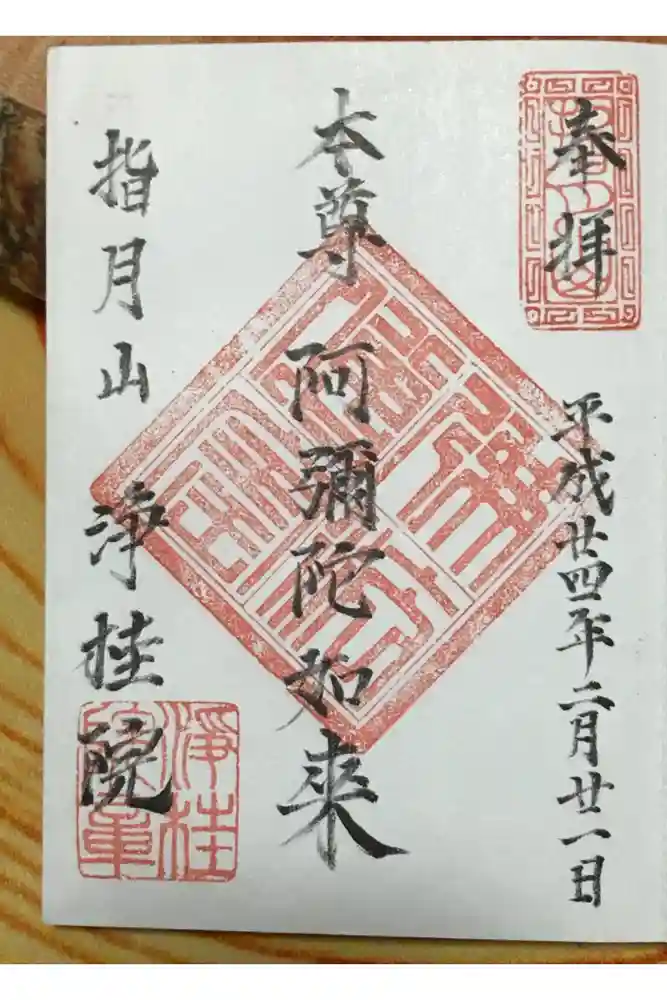 奉拝
平成廿四年二月廿一日
本尊 阿彌陀如来
指月山 浄桂院
浄桂
院章